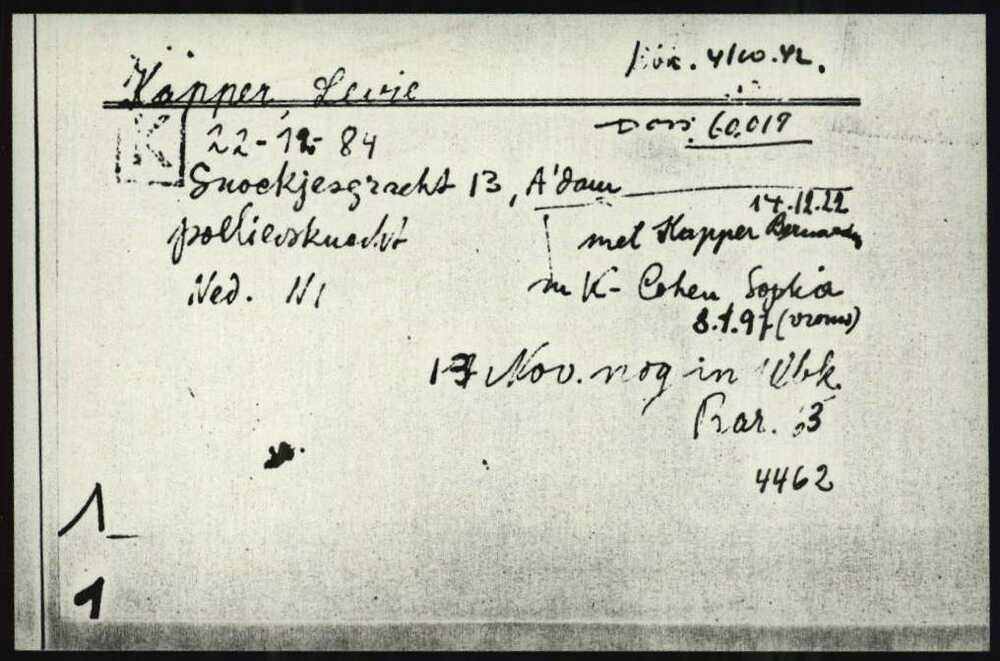 Kapper, Levie
Wbk. 4/10.42.
K
22-12-84
Doss. 60.019
Snoekjesgracht 13, A'dam
14.12.22
met Kapper Bernard
Ned. N I
m K- Cohen, Sophia
8.1.97 (vrouw)
13 Nov. nog in Wbk.
Bar. 63
4462
1
1